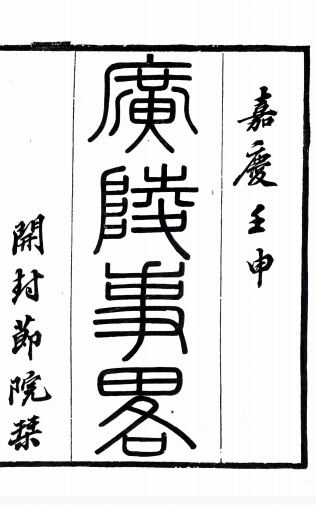 嘉慶壬申
廣陵事畧
開封節院栞